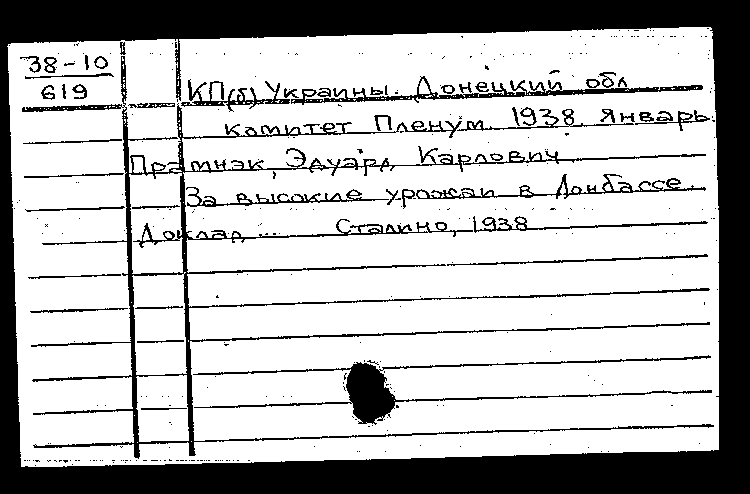 38-10
619
КП(б) Украины. Донецкий обл
комитет Пленум. 1938. Январь.
Прамнэк, Эдуард Карлович
За высокие урожаи в Донбассе.
Доклад ... Сталино, 1938